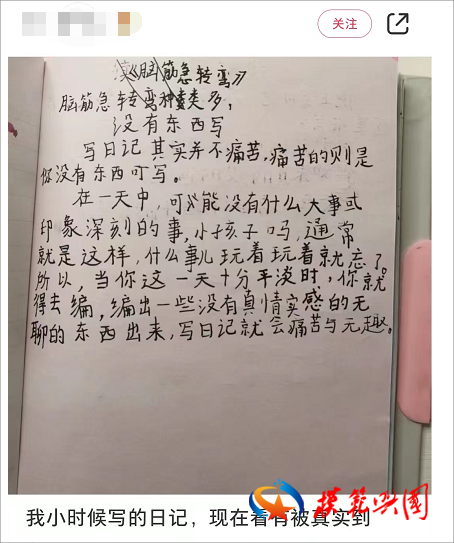 关注
读《脑筋急转弯》
脑筋急转弯种类多,
没有东西写
写日记其实并不痛苦,痛苦的则是
你没有东西可写。
在一天中,可能没有什么大事或
印象深刻的事,小孩子吗,通常
就是这样,什么事儿玩着玩着就忘了。
所以,当你这一天十分平淡时,你就
得去编,编出一些没有真情实感的无
聊的东西出来,写日记就会痛苦与无趣。
模范兴国
我小时候写的日记,现在看有被真实到